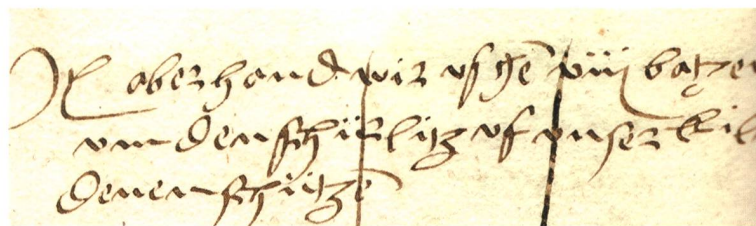 aber hand wir vsgen viij batzen
vm den schürlitz vf vnser kil
denen schützen